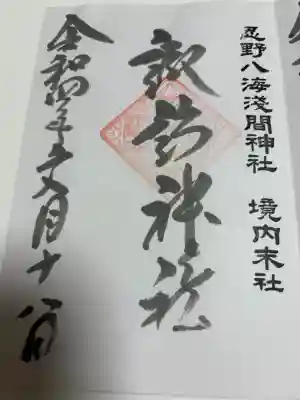 忍野八海淺間神社　境内末社
諏訪神社
令和年月十八日